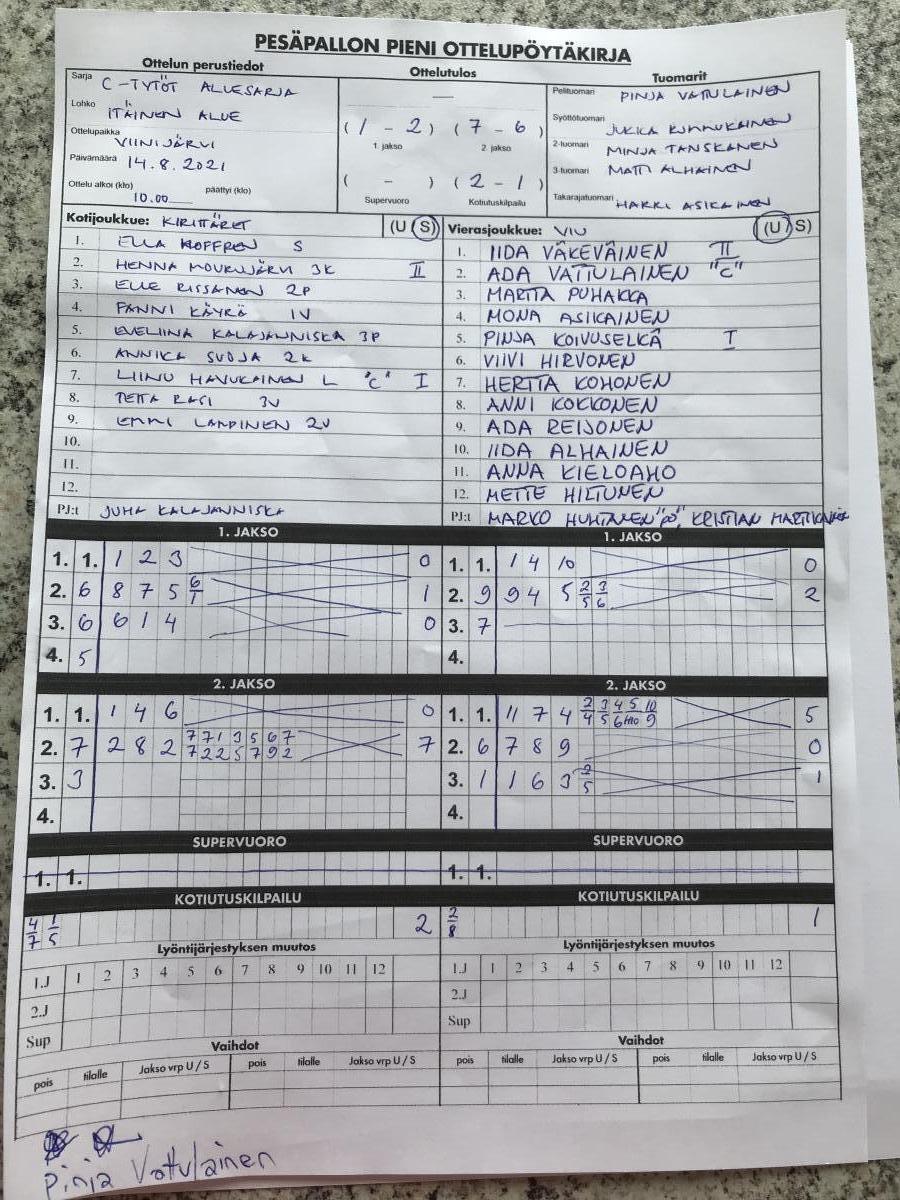 PESÄPALLON PIENI OTTELUPÖYTÄKIRJA
Ottelun perustiedot
Sarja C-TYTÖT ALUESARJA
Lohko ITÄINEN ALUE
Ottelupaikka VIINIJÄRVI
Päivämäärä 14.8.2021
Ottelu alkoi (klo) päättyi (klo)
10.00
Ottelutulos
(1 - 2) (7 - 6)
1. jakso 2. jakso
( - ) (2 - 1)
Supervuoro Kotiutuskilpailu
Tuomarit
Pelituomari PINJA VATULAINEN
Syöttötuomari JUKKA
2-tuomari MINJA TANSKANEN
3-tuomari MATTI ALHAINEN
Takarajatuomari HARRI ASIKAINEN
Kotijoukkue: KIRITTÄRET (U S)
1. ELLA KOFFREN S
2. HENNA 3K II
3. ELLE RISSANEN 2P
4. FANNI KÄYRÄ 1V
5. EVELIINA KALAJANNISKA 3P
6. ANNIKA SUOJA 2K
7. LIINU HAVUKAINEN L "C" I
8. RASI 3V
9. EMMI LAMPINEN 2V
10.
11.
12.
PJ:t JUHA KALAJANNISKA
Vierasjoukkue: VIU (U S)
1. IIDA VÄKEVÄINEN II
2. ADA VATTULAINEN "C"
3. MARTTA PUHAKKA
4. MONA ASIKAINEN
5. PINJA KOIVUSELKÄ I
6. VIIVI HIRVONEN
7. HERTTA KOHONEN
8. ANNI KOKKONEN
9. ADA REIJONEN
10. IIDA ALHAINEN
11. ANNA KIELOAHO
12. METTE HILTUNEN
PJ:t MARKO HUHTANEN "PJ", KRISTIAN MARTIKAINEN
1. JAKSO
1. 1. 1 2 3 0
2. 6 8 7 5 6/1 1
3. 6 6 1 4 0
4. 5
1. JAKSO
1. 1. 1 4 10 0
2. 9 9 4 5 2/5 3/6 2
3. 7
4.
2. JAKSO
1. 1. 1 4 6 0
2. 7 2 8 2 7/7 7/2 1/2 3/5 5/7 6/9 7/2 7
3. 3
4.
2. JAKSO
1. 1. 11 7 4 2/4 3/5 4/6 10/9 5
2. 6 7 8 9 0
3. 1 1 6 3 2/5 1
4.
SUPERVUORO
1. 1.
SUPERVUORO
1. 1.
KOTIUTUSKILPAILU
4/7 1/5 2
KOTIUTUSKILPAILU
2/8 1
Lyöntijärjestyksen muutos
1.J 1 2 3 4 5 6 7 8 9 10 11 12
2.J
Sup
Lyöntijärjestyksen muutos
1.J 1 2 3 4 5 6 7 8 9 10 11 12
2.J
Sup
Vaihdot
pois tilalle Jakso vrp U / S pois tilalle Jakso vrp U / S
Vaihdot
pois tilalle Jakso vrp U / S pois tilalle Jakso vrp U / S
Pinja Vattulainen